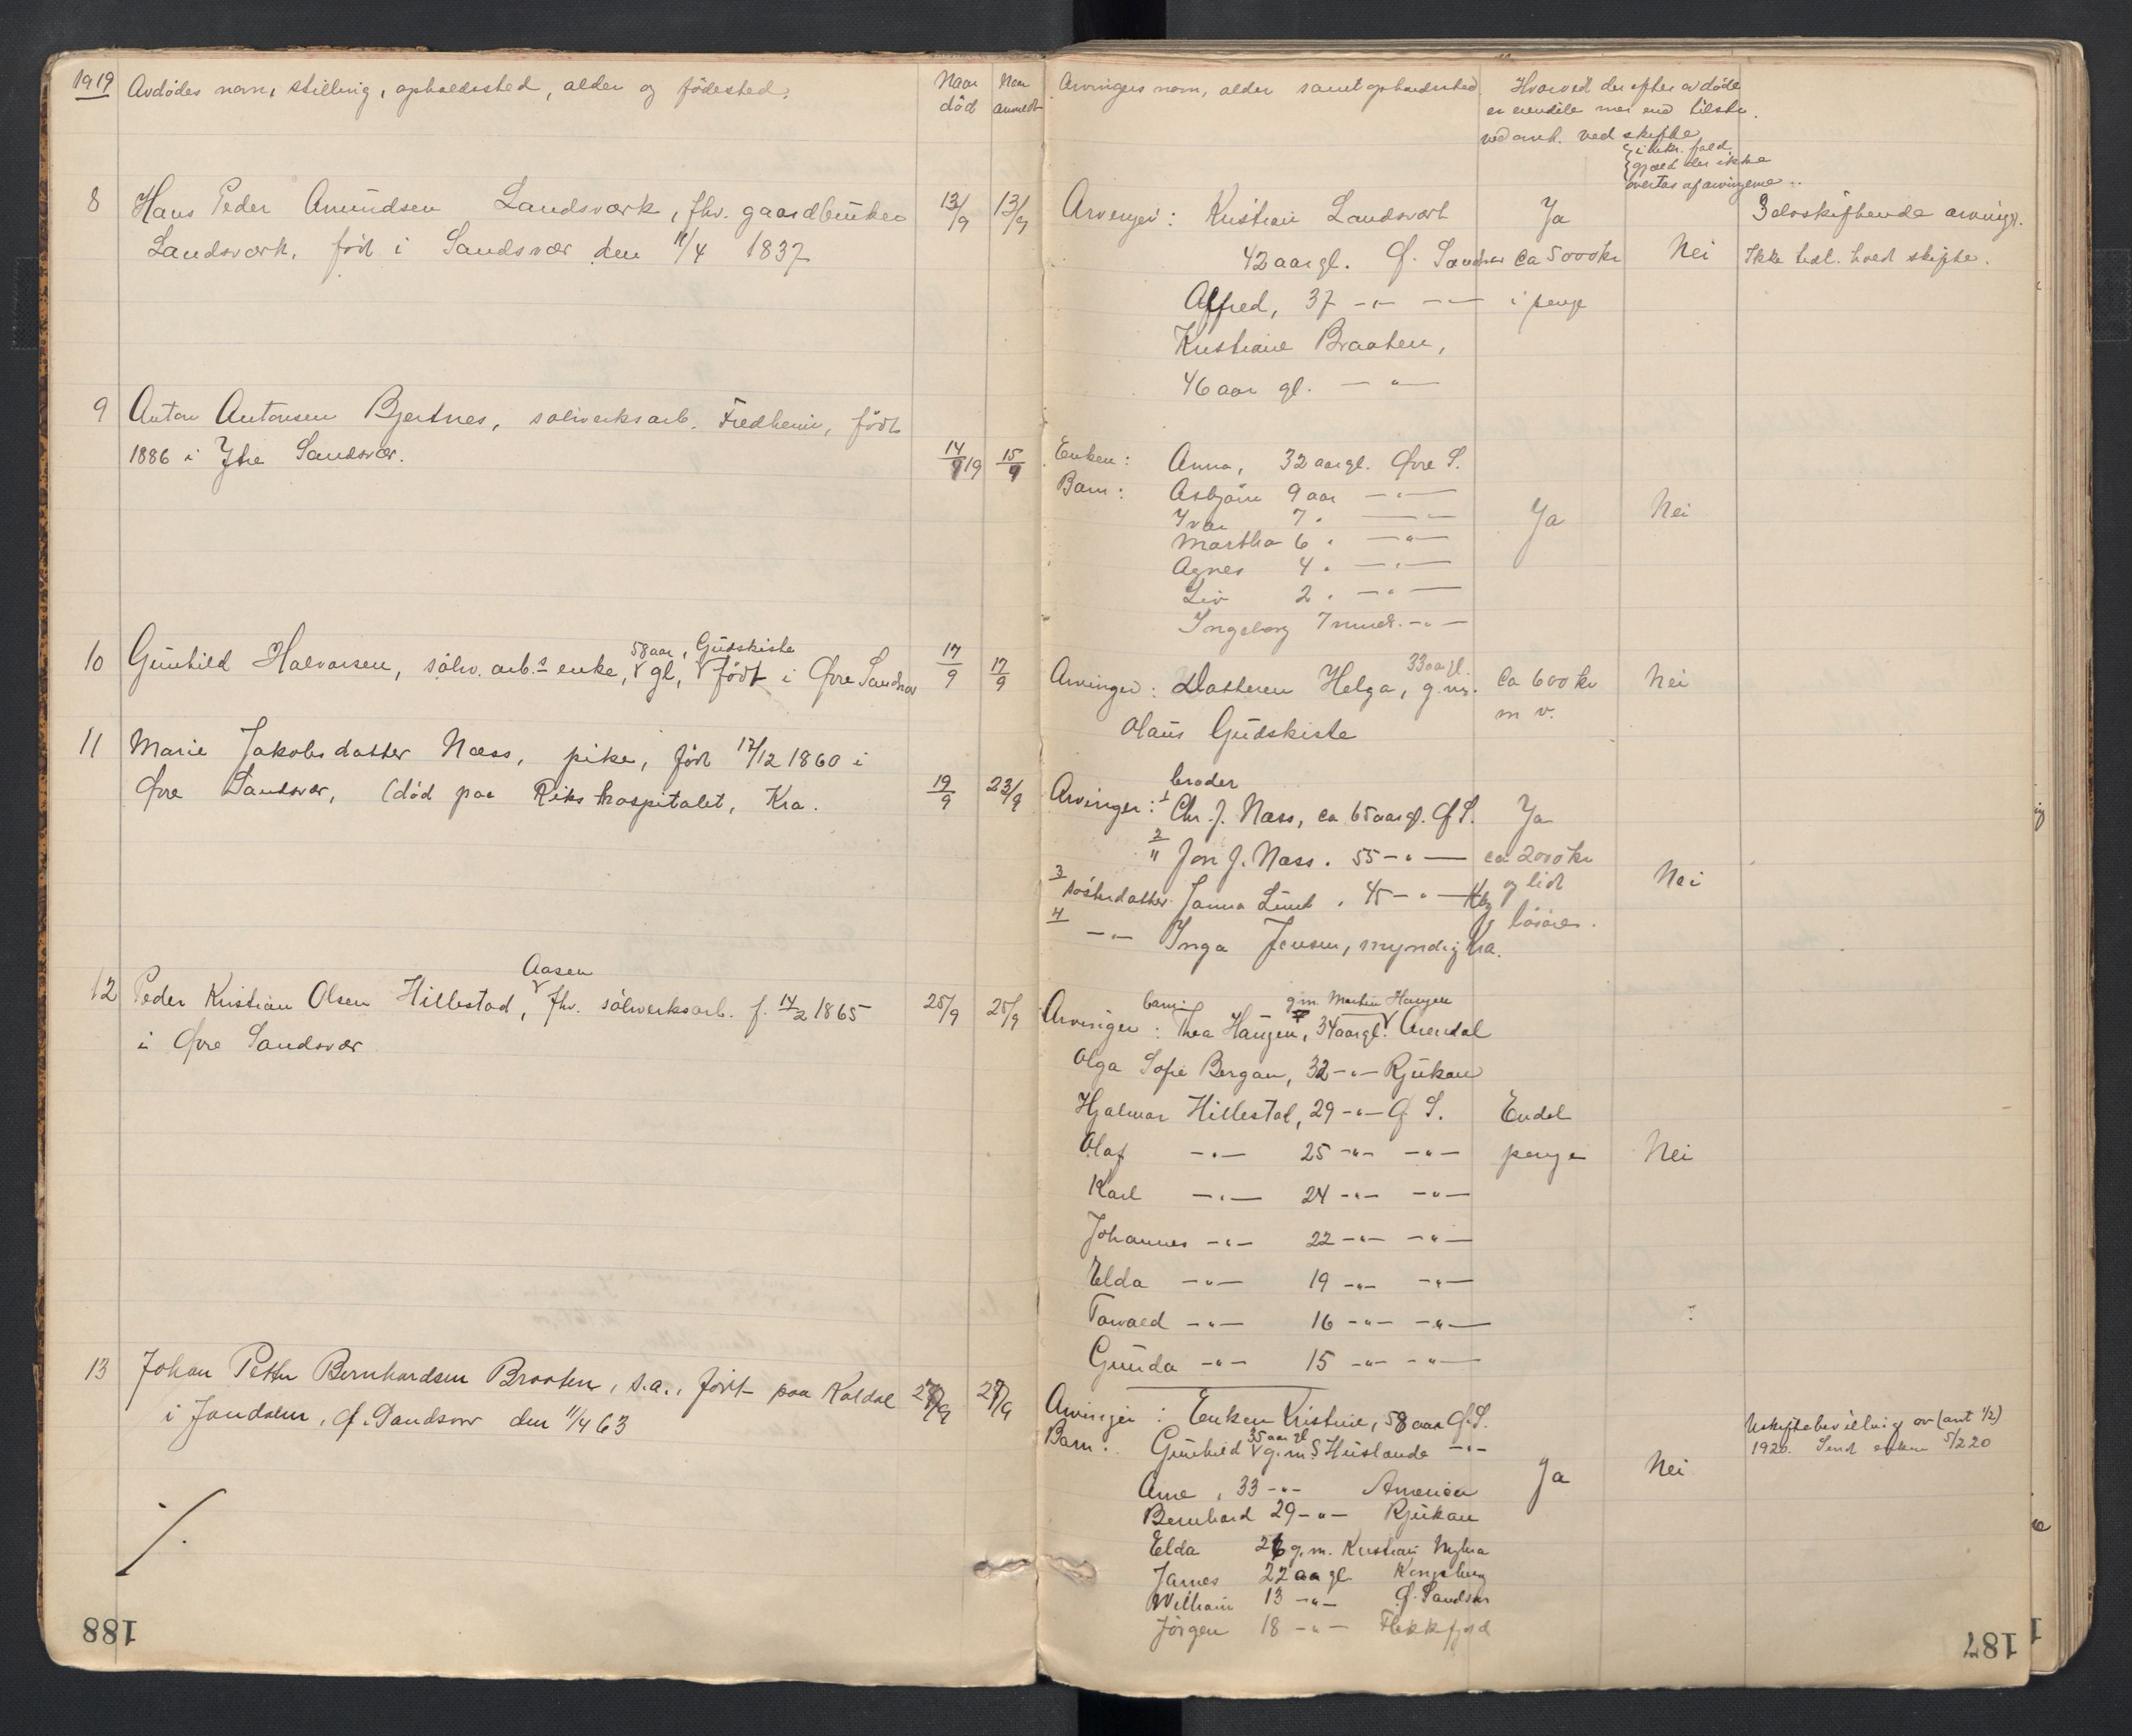 1919 Avdödes navn, stilling, opholdssted, alder og födested.
Naar död
Naar anmeldt
Arvingers navn, alder samt opholdssted
Hvorvidt der efter avdöde
er eiendele mer end tilstr.
ved ank. ved skifte
i bekr. fald
gjæld der ikke
overtas af arvingerne
8 Hans Peder Amundsen Landsværk, fhv. gaardbruker 13/9 13/9 Arvinger: Kristian Landsværk Ja 3 selvskiftende arving.
Landsværk, född i Sandsvær den 11/4 1837 42 aar gl. Ø. Sandsvær Ca 5000 kr Nei Ikke bedt. hvad skifte.
Alfred, 37 -"- -"- i penge
Kristiane Braaten,
46 aar gl. -"-
9 Anton Antonsen Bjertnes, sölverksarb. Fredheim, födt
1886 i Ytre Sandsvær. 14/9 19 15/9 Enken: Anna, 32 aar gl. Øvre S.
Barn: Asbjörn 9 aar -"-
Ivar 7 " -"- Ja Nei
Martha 6 " -"-
Agnes 4 " -"-
Liv 2 " -"-
Ingeborg 7 mnd. -"-
10 Gunhild Halvorsen, sölv. arb.s enke, 58 aar gl, Gudskiste födt i Øvre Sandsvær 17/9 17/9 Arvinger: Datteren Helga, 33 aar gl. g.m. Ca 600 kr Nei
Olaus Gudskiste m v.
11 Marie Jakobsdatter Næss, pike, född 17/12 1860 i
Øvre Sandsvær, (död paa Rikshospitalet, Kra. 19/9 23/9 Arvinger: broder
1 Chr. J. Næss, ca 65 aar gl. Ø S. Ja
2 " Jon J. Næss. 55 -"- ca 2000 kr
3 Sösterdatter Janna Lund . 45 -"- Kbg og lidt Nei
lösöre.
4 -"- Inga Jensen, myndig Kra.
12 Peder Kristian Olsen Hillestad, Aasen fhv. sölverksarb. f. 14/2 1865 25/9 25/9 Arvinger: barn: Thea Haugen, 34 aar gl. g.m. Martin Haugen Arendal
i Øvre Sandsvær
Olga Sofie Bergan, 32 -"- Rjukan
Hjalmar Hillestad, 29 -"- Ø S. Endel
Olaf -"- 25 -"- -"- penge Nei
Karl -"- 24 -"- -"-
Johannes -"- 22 -"- -"-
Elda -"- 19 -"- -"-
Torvald -"- 16 -"- -"-
Gunda -"- 15 -"- -"-
13 Johan Petter Bernhardsen Braaten, s.a., födt paa Koldal 27/9 27/9 Arvinger: Enken Kristine, 58 aar Ø.S.
i Jondalen, Ø. Sandsvær den 11/4 63
Uskiftebevilling av (ant 1/2)
1920. Sendt enken 5/2 20
Barn: Gunhild 35 aar gl g.m. S. Huslande -"-
Arne, 33 -"- Amerika Ja Nei
Bernhard 29 -"- Rjukan
Elda 26 g.m. Kristian Myhra
James 22 aa gl. Kongsberg
William 13 -"- Ø. Sandsvær
Jörgen 18 -"- Flekkefjord
./.
188
187